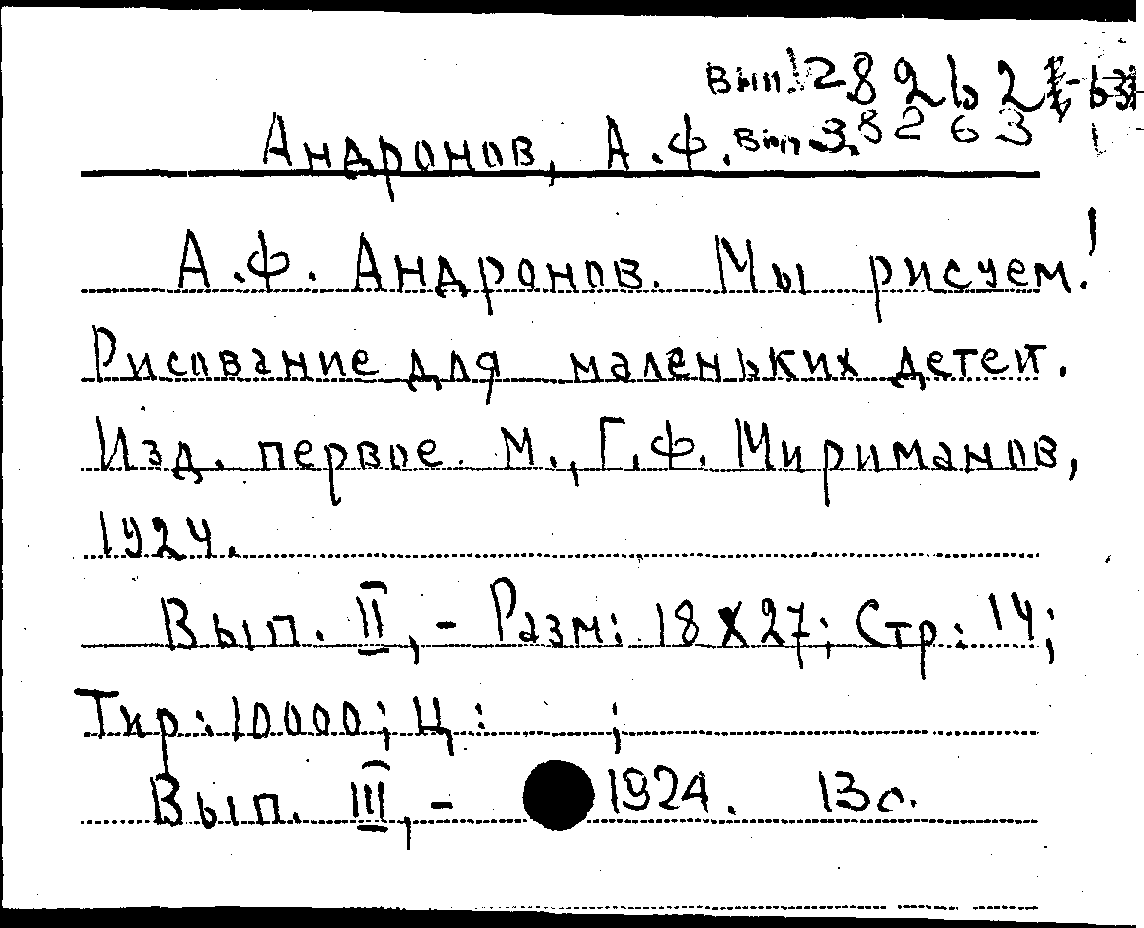 Вып. 2 8262
Андронов, А.Ф. Вып 3. 8263
А.Ф. Андронов. Мы рисуем!
Рисование для маленьких детей.
Изд. первое. М., Г.Ф. Мириманов,
1924.
Вып. II, - Разм: 18X27; Стр: 14;
Тир: 10000; Ц: ;
Вып. III, - 1924. 13 с.